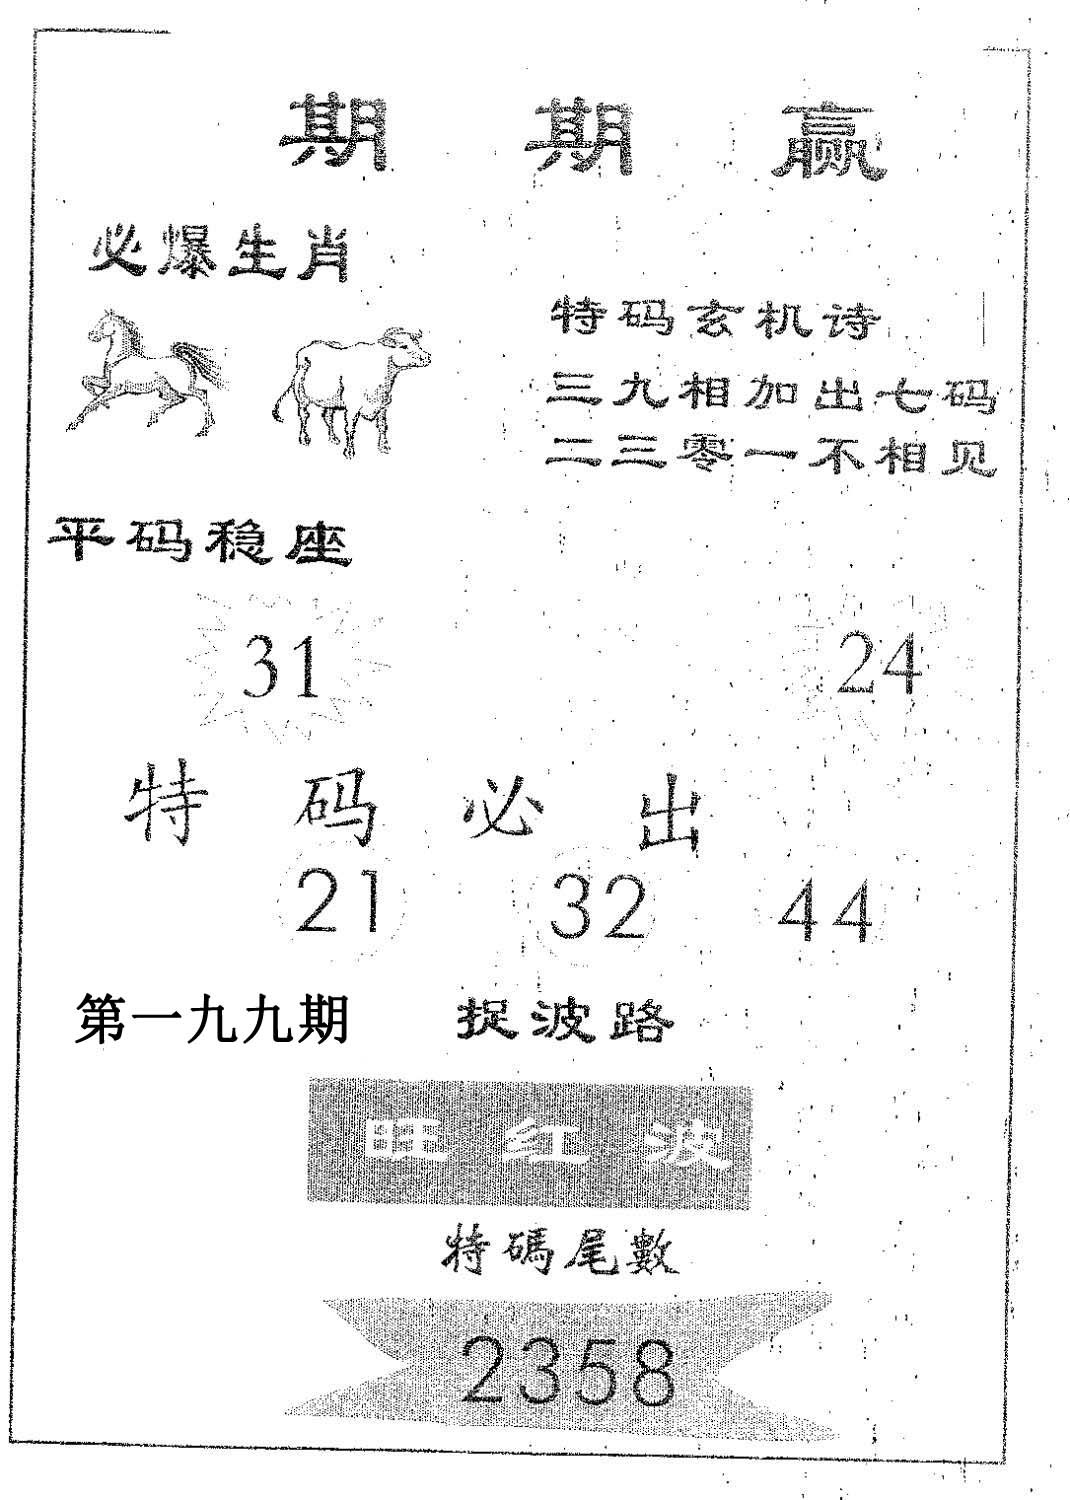 期期赢
必爆生肖
特码玄机诗
三九相加出七码
二三零一不相见
平码稳座
31 24
特码必出
21 32 44
第一九九期 捉波路
旺红波
特碼尾數
2358